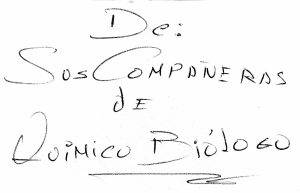 De:
Sus Compañeras
de
Químico Biólogo